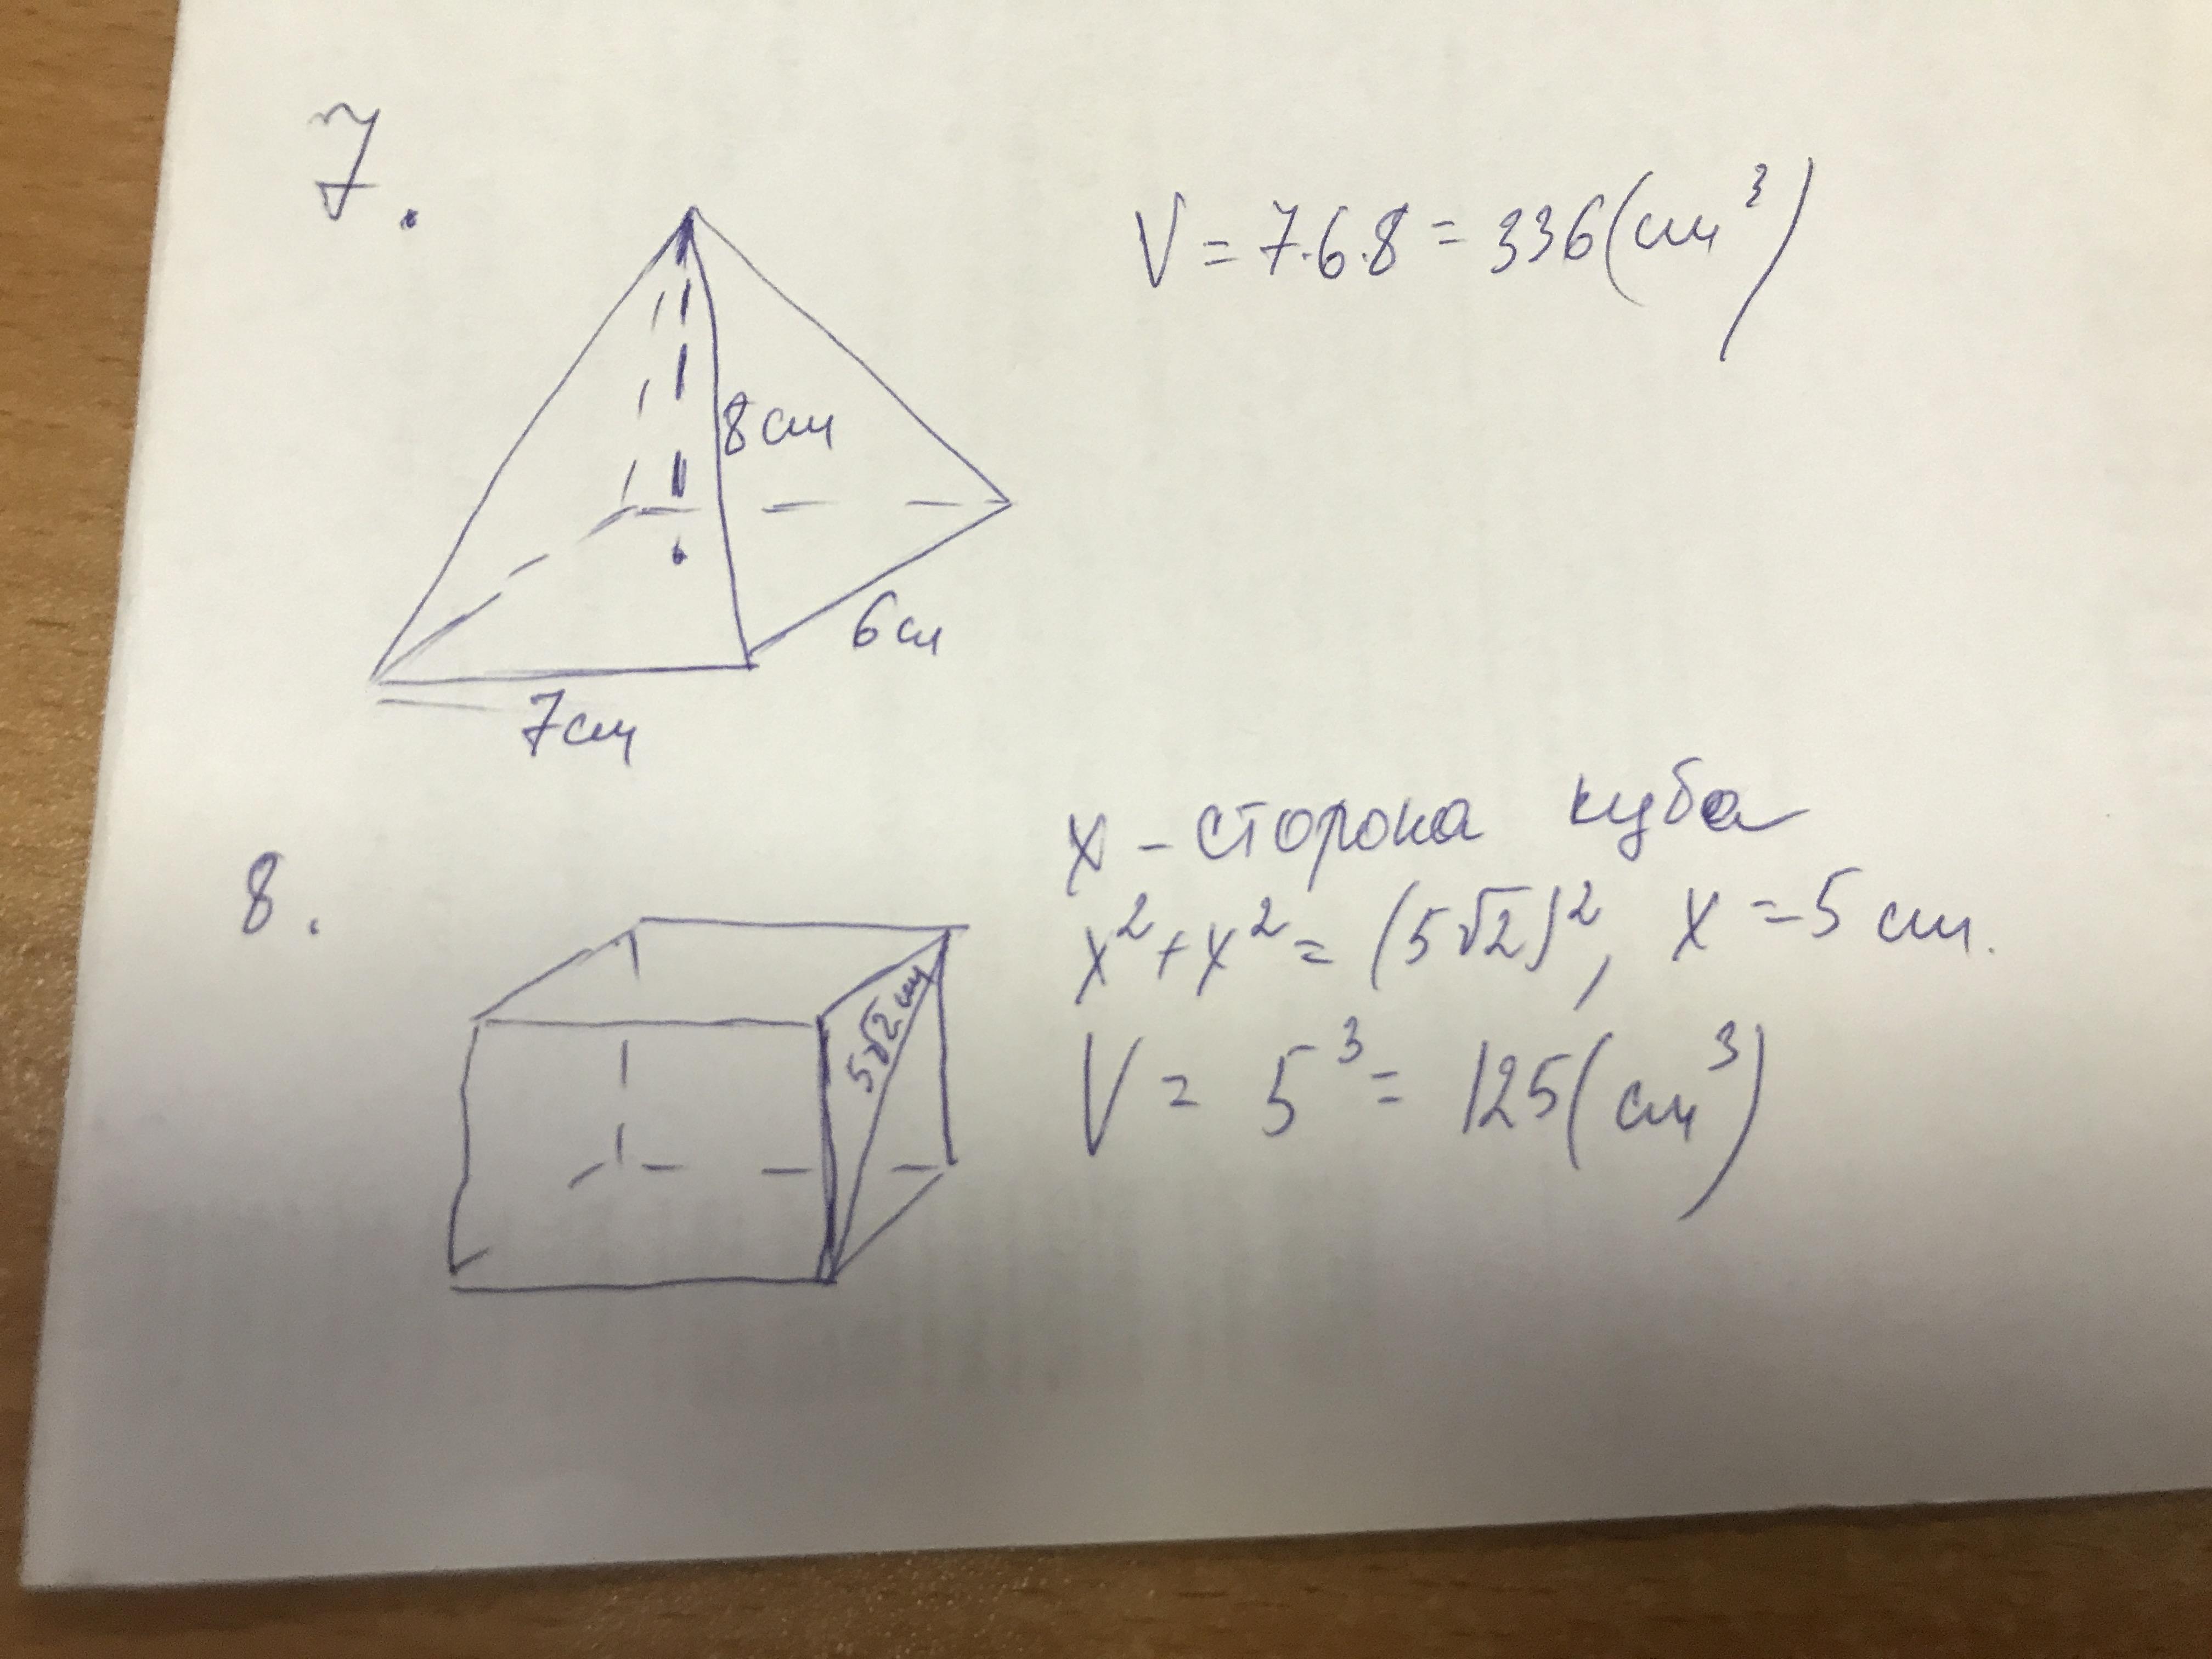 7.
V = 7·6·8 = 336(см³)
8см
6см
7см
8.
x – сторона куба
x² + x² = (5√2)², x = 5 см.
5√2 см
V = 5³ = 125(см³)